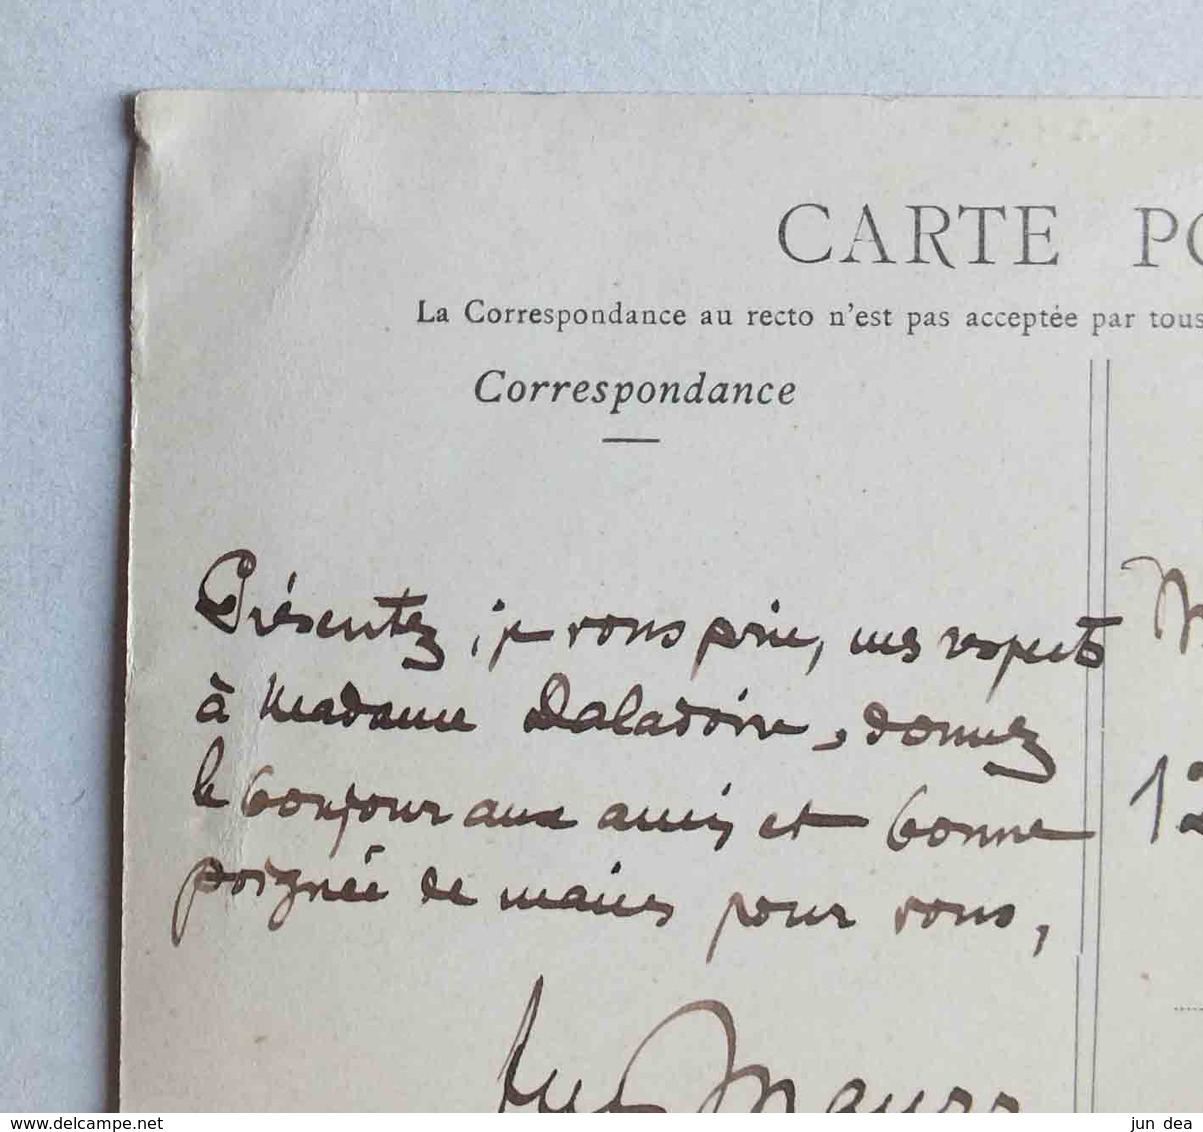 CARTE PO
La Correspondance au recto n'est pas acceptée par tous
Correspondance
Présentez, je vous prie, mes respects
à Madame Daladoire, donnez
le bonjour aux amis et bonne
poignée de mains pour vous,
www.delcampe.net
jun dea